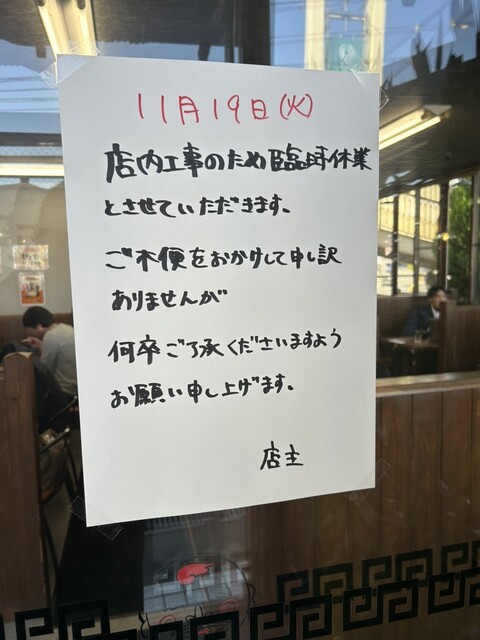 11月19日(火)
店内工事のため臨時休業
とさせていただきます。
ご不便をおかけして申し訳
ありませんが
何卒ご了承くださいますよう
お願い申し上げます。
店主